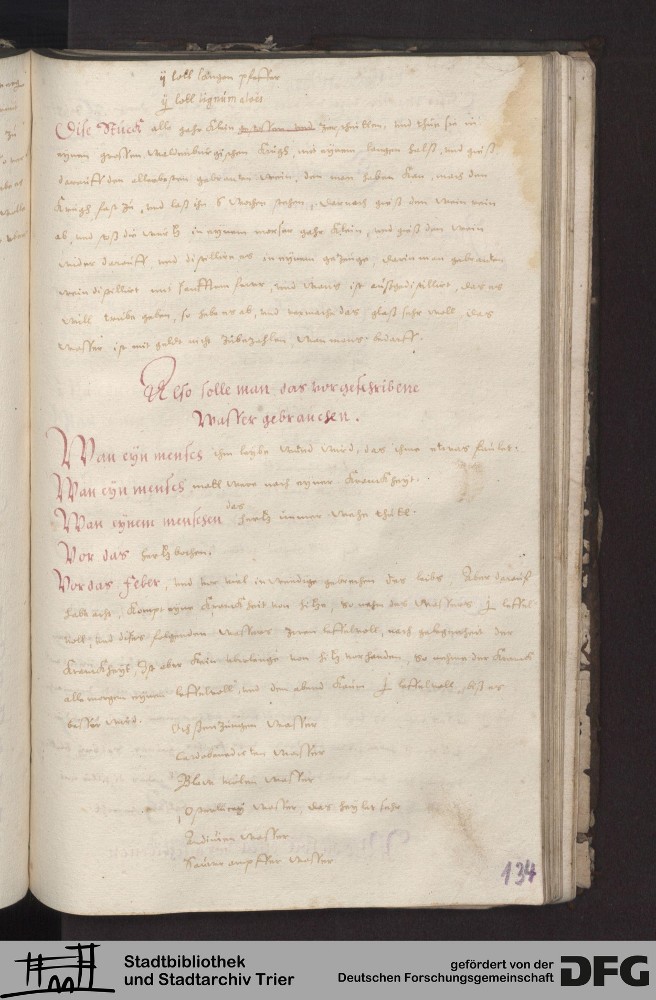 ij lott langen pfeffer
ij lott lignum aloes
Dise stuck alle gahr klein zerschnitten, und thue sie in
eynen grossen waldenburgischen krugh, mit eynem langen halß, und geuß
darauff den allerbesten gebranten wein, den man haben kan, mach den
krugh fast zu, und laß ihn 6 wochen stehen, darnach geuß den wein rein
ab, und stoß die wurtz in eynem morser gahr klein, und geuß den wein
wider darauff, und distillire es in eynem gezeuge, darin man gebranten
wein distillirt mit sanfftem feuer, und wans ist außgedistillirt, das es
will trube gehen, so hebe es ab, und vermache das glaß sehr woll, das
wasser ist mit gelde nicht zubezahlen, wan mans bedarff.
Also solle man das vorgeschribene
Wasser gebrauchen.
Wan eyn mensch ihm leybe wund wird, das ihme etwas faulet.
Wan eyn mensch matt were nach eyner kranckheyt.
Wan eynem menschen das hertz immer wehe thutt.
Vor das hertz bochen.
Vor das feber, und vor viel inwendige gebrechen des leibs, Aber darauff
habe acht, kompt eyne kranckheit von hitze, so nehm des wassers j loffel
voll, und dises folgenden wassers zwen loffelvoll, nach gelegenheit der
kranckheyt, Ist aber kein uberlenge von hitz vorhanden, so nehme der kranck
alle morgen eynen loffelvoll und den abend kaum j loffelvoll, biß es
besser wird.
Ochssenzungen wasser
Cardobenedicten wasser
Wasser
wasser, das heylet sehr
Andivien wasser
Saurerampffer wasser
134
Stadtbibliothek
und Stadtarchiv Trier
gefördert von der
Deutschen Forschungsgemeinschaft
DFG